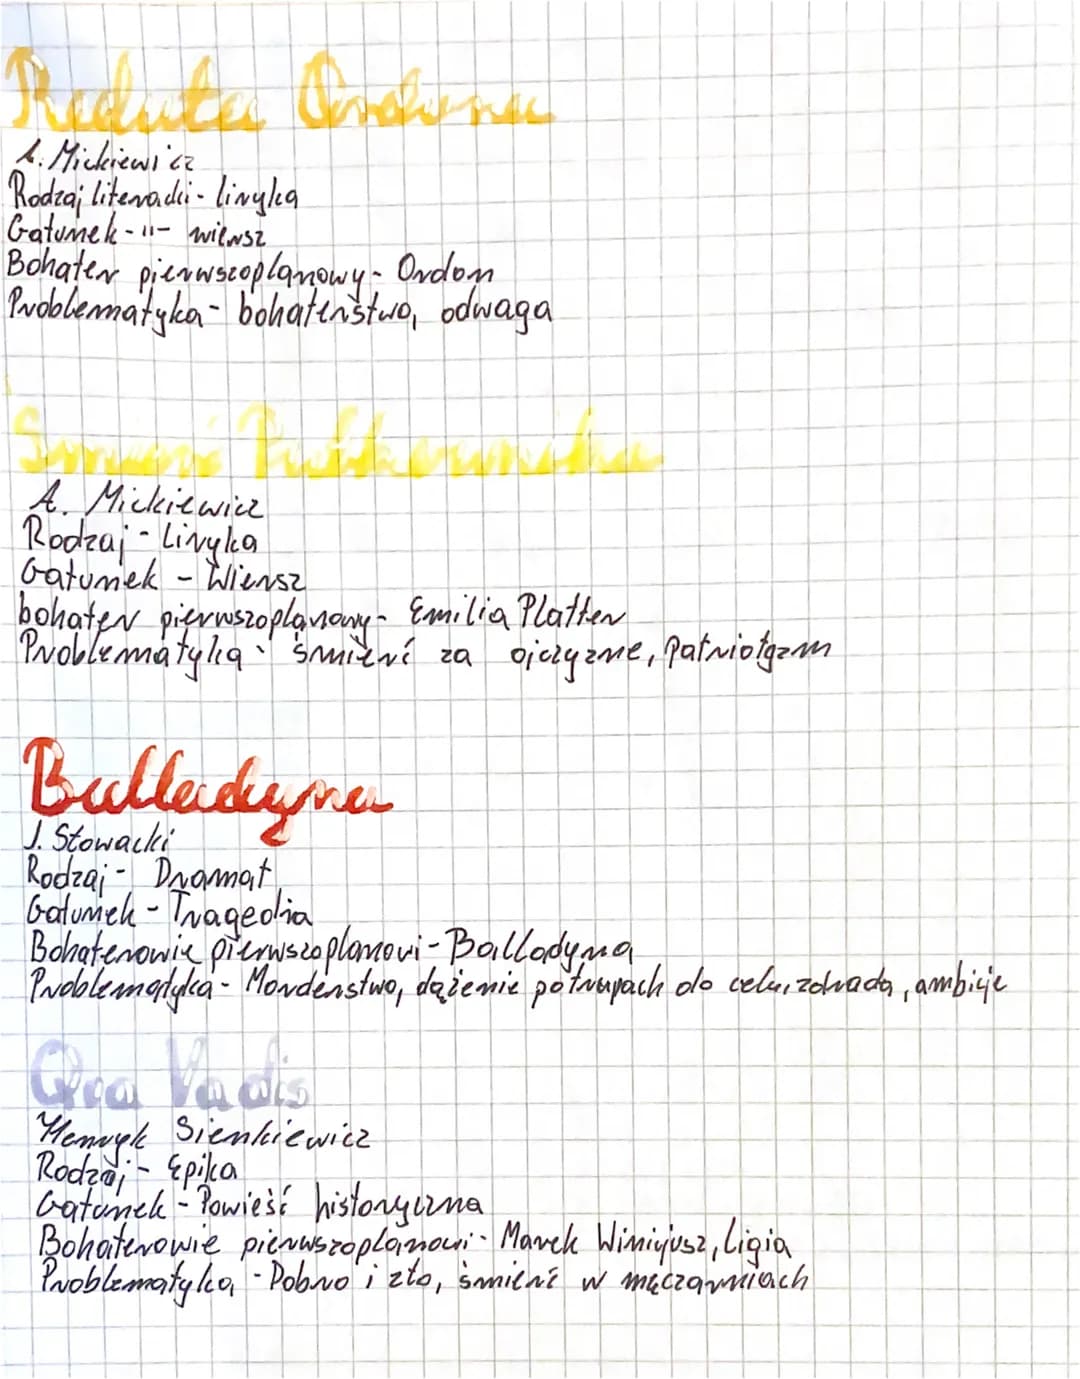 Reduta Ordona
A. Mickiewicz
Rodzaj literacki - liryka
Gatunek -11- wiersz
Bohater pierwszoplanowy - Ordon
Problematyka - bohaterstwo, odwaga
Śmierć Pułkownika
A. Mickiewicz
Rodzaj - Liryka
Gatunek - Wiersz
bohater pierwszoplanowy - Emilia Platter
Problematyka - śmierć za ojczyzne, patriotyzm
Balladyna
J. Słowacki
Rodzaj - Dramat
Gatunek - Tragedia
Bohaterowie pierwszoplanowi - Balladyna
Problematyka - Morderstwo, dążenie po trupach do celu, zdrada, ambicje
Qua Vadis
Henryk Sienkiewicz
Rodzaj - Epika
Gatunek - Powieść historyczna
Bohaterowie pierwszoplanowi - Marek Winicjusz, Ligia
Problematyka - Dobro i zło, śmierć w męczarniach